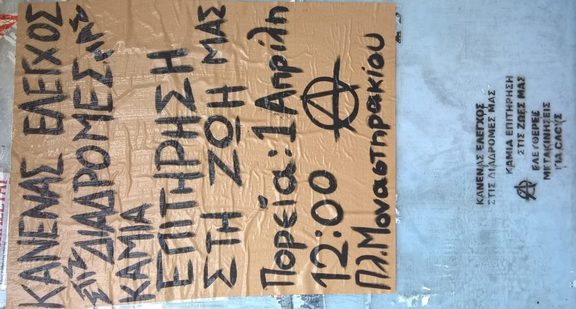 ΚΑΝΕΝΑΣ ΕΛΕΓΧΟΣ
ΣΤΙΣ ΔΙΑΔΡΟΜΕΣ ΜΑΣ
ΚΑΜΙΑ
ΕΠΙΤΗΡΗΣΗ
ΣΤΗ ΖΩΗ ΜΑΣ
Πορεία: 1 Απρίλη
12:00
Πλ. Μοναστηρακίου
ΚΑΝΕΝΑΣ ΕΛΕΓΧΟΣ
ΣΤΙΣ ΔΙΑΔΡΟΜΕΣ ΜΑΣ
ΚΑΜΙΑ ΕΠΙΤΗΡΗΣΗ
ΣΤΙΣ ΖΩΕΣ ΜΑΣ
ΕΛΕΥΘΕΡΕΣ
ΜΕΤΑΚΙΝΗΣΕΙΣ